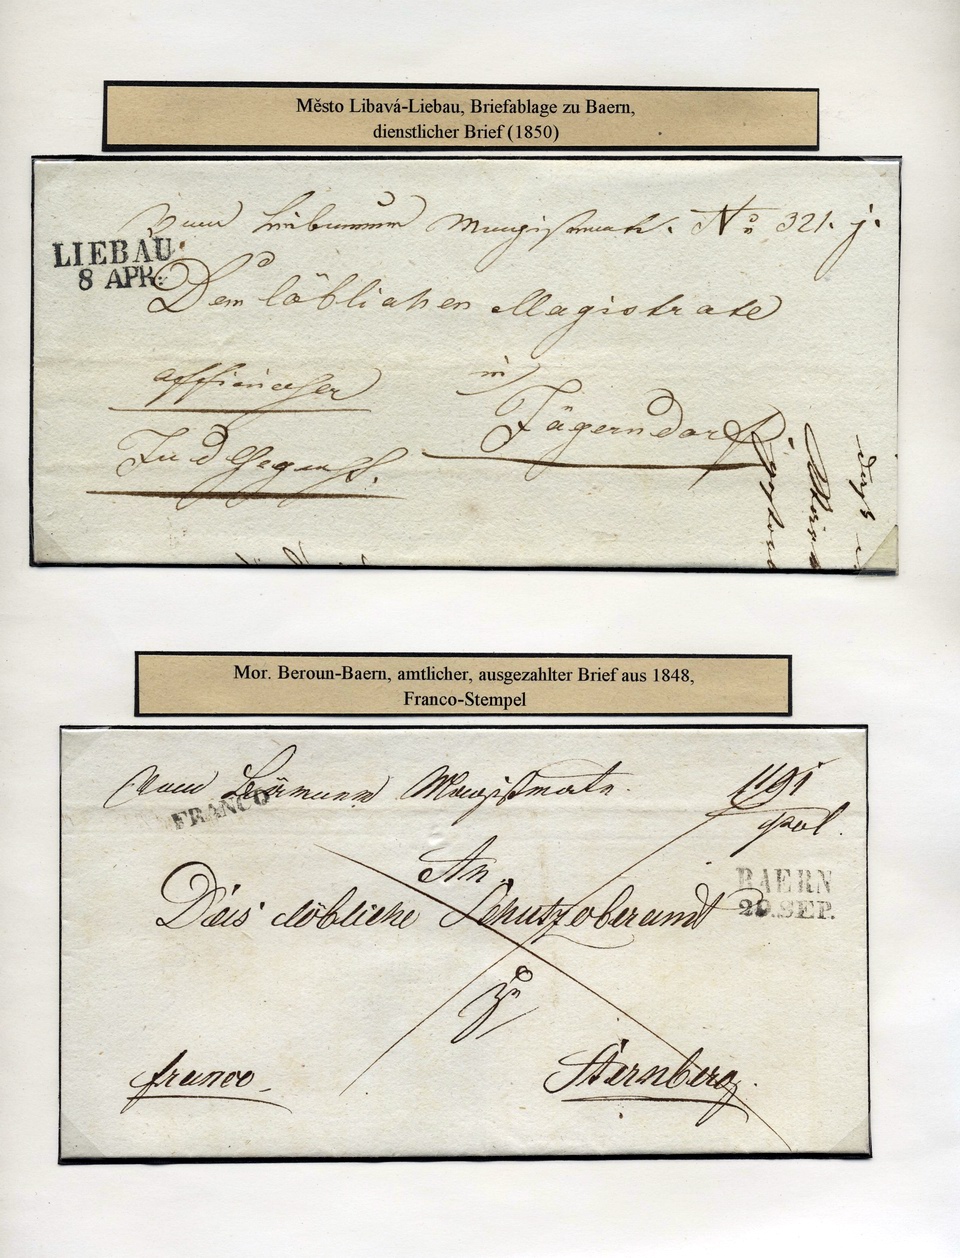 Město Libavá-Liebau, Briefablage zu Baern,
dienstlicher Brief (1850)
Vom Liebauer Magistrate. No 321. j.
LIEBAU
8 APR:
Dem löblichen Magistrate
in
Jägerndorf
Mor. Beroun-Baern, amtlicher, ausgezahlter Brief aus 1848,
Franco-Stempel
Vom Bärner Magistrate.
1191
pol.
FRANCO
An
BAERN
29.SEP.
Das löbliche Schutzoberamt
zu
franco
Sternberg.